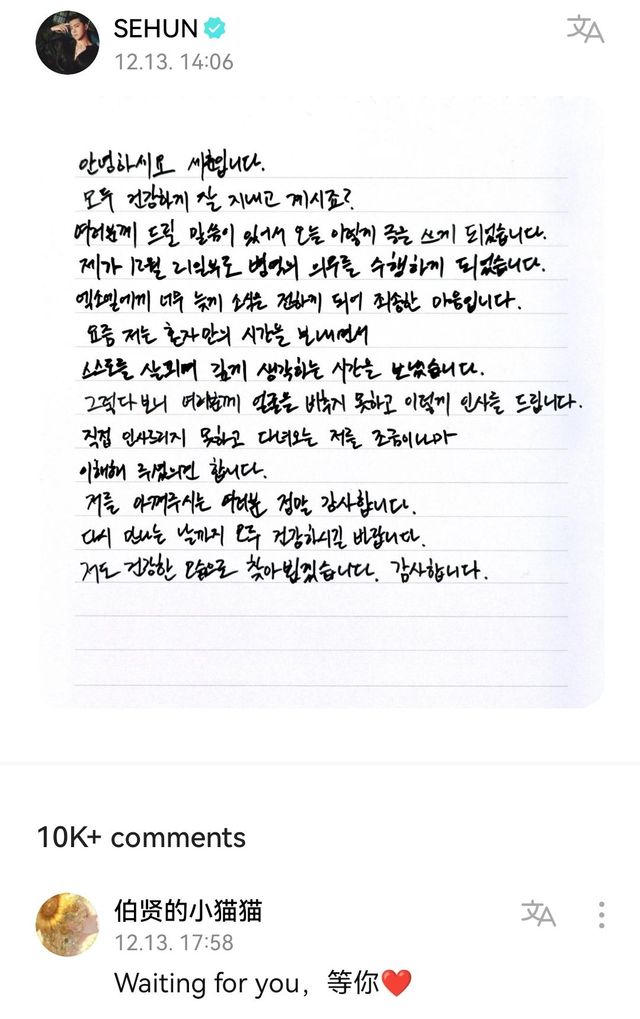 SEHUN
12.13. 14:06
안녕하세요 세훈입니다.
모두 건강하게 잘 지내고 계시죠?
여러분께 드릴 말씀이 있어서 오늘 이렇게 글을 쓰게 되었습니다.
제가 12월 21일부로 병역의 의무를 수행하게 되었습니다.
엑소엘에게 너무 늦게 소식을 전하게 되어 죄송한 마음입니다.
요즘 저는 혼자만의 시간을 보내면서
스스로를 살피며 깊게 생각하는 시간을 보냈습니다.
그렇다보니 여러분께 얼굴을 비추지 못하고 이렇게 인사를 드립니다.
직접 인사드리지 못하고 다녀오는 저를 조금이나마
이해해 주셨으면 합니다.
저를 아껴주시는 여러분 정말 감사합니다.
다시 만나는 날까지 모두 건강하시길 바랍니다.
저도 건강한 모습으로 찾아뵙겠습니다. 감사합니다.
10K+ comments
伯贤的小猫猫
12.13. 17:58
Waiting for you，等你❤️